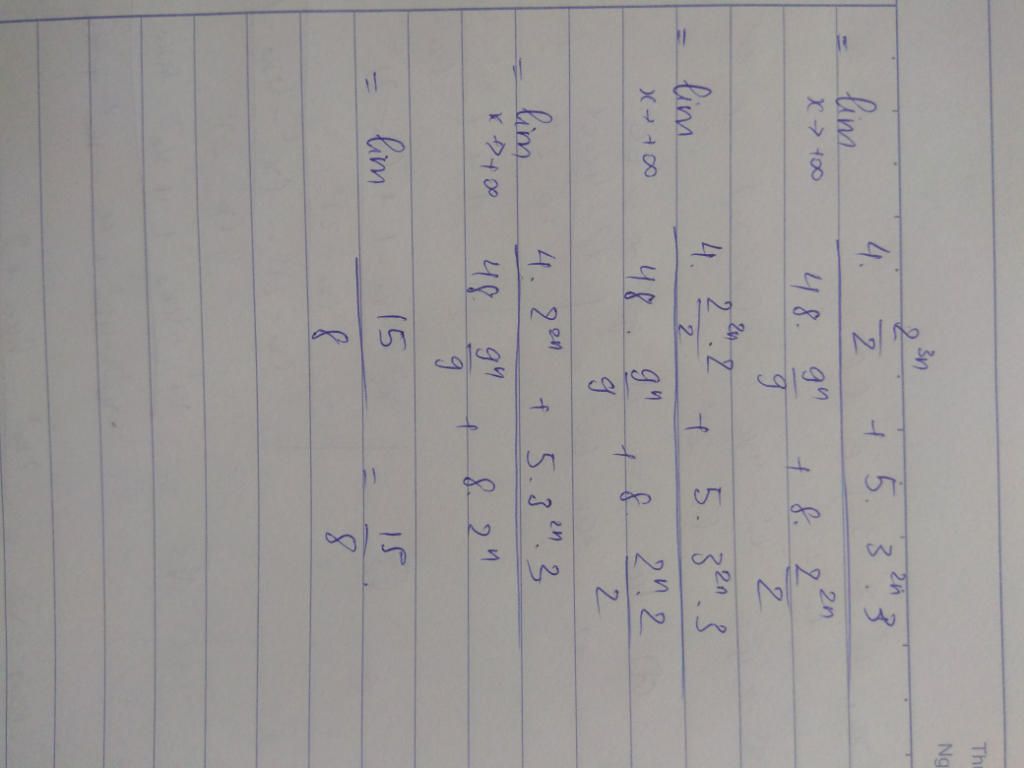 Ng
2³ⁿ
4. ― + 5. 3²ⁿ.3
2
= lim
x→+∞
48. 9ⁿ/9 + 8. 2²ⁿ/2
= lim
x→+∞
4. 2²ⁿ.2/2 + 5. 3²ⁿ.3
48 . 9ⁿ/9 + 8 2ⁿ.2/2
= lim
x→+∞
4. 2²ⁿ + 5.3²ⁿ.3
48 9ⁿ/9 + 8.2ⁿ
= lim 15/8 = 15/8.